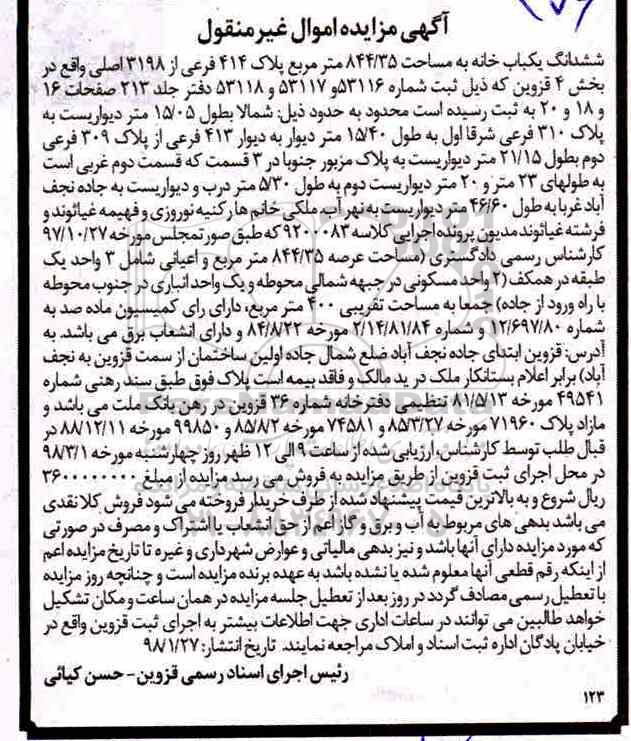 آگهی مزایده اموال غیر منقول
ششدانگ یکباب خانه به مساحت ۸۴۴/۳۵ متر مربع پلاک ۴۱۴ فرعی از ۳۱۹۸ اصلی واقع در
بخش ۴ قزوین که ذیل ثبت شماره ۵۳۱۱۶و ۵۳۱۱۷ و ۵۳۱۱۸ دفتر جلد ۲۱۳ صفحات ۱۶
و ۱۸ و ۲۰ به ثبت رسیده است محدود به حدود ذیل: شمالا بطول ۱۵/۰۵ متر دیواریست به
پلاک ۳۱۰ فرعی شرقا اول به طول ۱۵/۴۰ متر دیوار به دیوار ۴۱۳ فرعی از پلاک ۳۰۹ فرعی
دوم بطول ۲۱/۱۵ متر دیواریست به پلاک مزبور جنوبا در ۳ قسمت که قسمت دوم غربی است
به طولهای ۲۳ متر و ۲۰ متر دیواریست دوم به طول ۵/۳۰ متر درب و دیواریست به جاده نجف
آباد غربا به طول ۴۶/۶۰ متر دیواریست به نهر آب. ملکی خانم ها رکنیه نوروزی و فهیمه غیاثوند و
فرشته غیاثوند مدیون پرونده اجرایی کلاسه ۹۲۰۰۰۸۳ که طبق صورتمجلس مورخه ۹۷/۱۰/۲۷
کارشناس رسمی دادگستری (مساحت عرصه ۸۴۴/۳۵ متر مربع و اعیانی شامل ۳ واحد یک
طبقه در همکف (۲ واحد مسکونی در جبهه شمالی محوطه و یک واحد انباری در جنوب محوطه
با راه ورود از جاده) جمعا به مساحت تقریبی ۴۰۰ متر مربع، دارای رای کمیسیون ماده صد به
شماره ۱۲/۶۹۷/۸۰ و شماره ۲/۱۴/۸۱/۸۴ مورخه ۸۴/۸/۲۲ و دارای انشعاب برق می باشد. به
آدرس: قزوین ابتدای جاده نجف آباد ضلع شمال جاده اولین ساختمان از سمت قزوین به نجف
آباد) برابر اعلام بستانکار ملک در ید مالک و فاقد بیمه است پلاک فوق طبق سند رهنی شماره
۴۹۵۴۱ مورخه ۸۱/۵/۱۳ تنظیمی دفترخانه شماره ۳۶ قزوین در رهن بانک ملت می باشد و
مازاد پلاک ۷۱۹۶۰ مورخه ۸۵/۳/۲۷و ۷۴۵۸۱ مورخه ۸۵/۸/۲ و ۹۹۸۵۰ مورخه ۸۸/۱۲/۱۱ در
قبال طلب توسط کارشناس، ارزیابی شده از ساعت ۹ الی ۱۲ ظهر روز چهارشنبه مورخه ۹۸/۳/۱
در محل اجرای ثبت قزوین از طریق مزایده به فروش می رسد مزایده از مبلغ ۳۶۰۰۰۰۰۰۰۰
ریال شروع و به بالاترین قیمت پیشنهاد شده از طرف خریدار فروخته می شود فروش کلا نقدی
می باشد بدهی های مربوط به آب و برق و گاز اعم از حق انشعاب یا اشتراک و مصرف در صورتی
که مورد مزایده دارای آنها باشد و نیز بدهی مالیاتی و عوارض شهرداری و غیره تا تاریخ مزایده اعم
از اینکه رقم قطعی آنها معلوم شده یا نشده باشد به عهده برنده مزایده است و چنانچه روز مزایده
با تعطیل رسمی مصادف گردد در روز بعد از تعطیل جلسه مزایده در همان ساعت و مکان تشکیل
خواهد طالبین می توانند در ساعات اداری جهت اطلاعات بیشتر به اجرای ثبت قزوین واقع در
خیابان پادگان اداره ثبت اسناد و املاک مراجعه نمایند. تاریخ انتشار: ۹۸/۱/۲۷
رئیس اجرای اسناد رسمی قزوین - حسن کیائی
۱۲۳